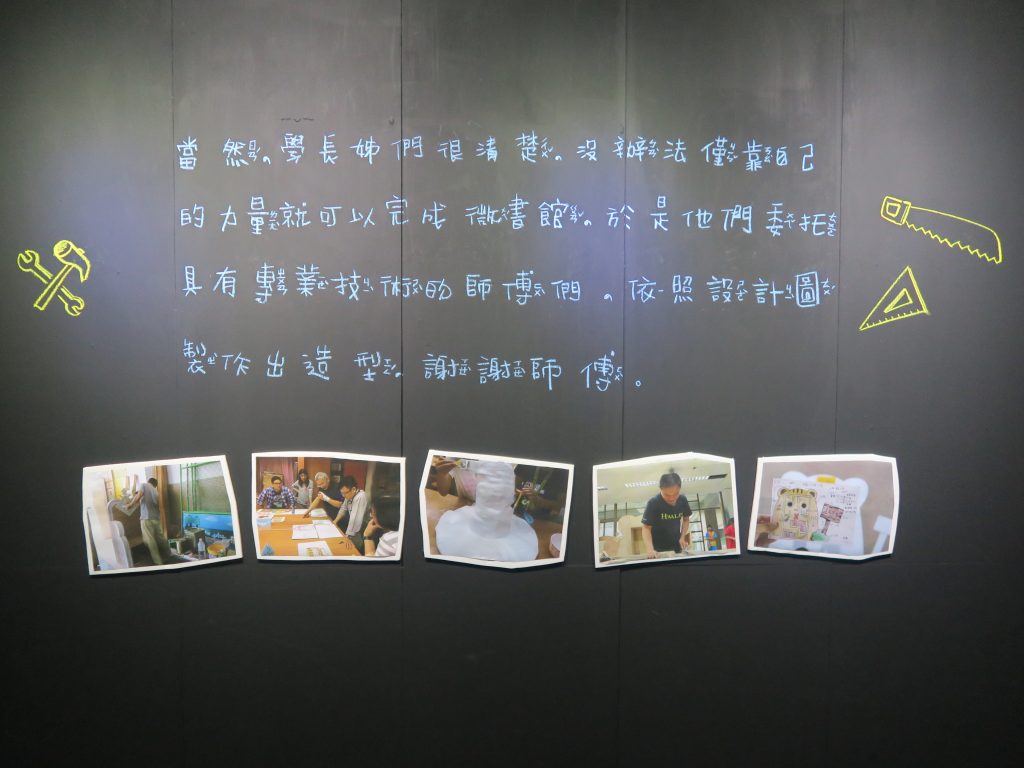 當然。學長姊們很清楚。沒辦法僅靠自己
的力量就可以完成微書館。於是他們委托
具有專業技術的師傅們。依照設計圖
製作出造型。謝謝師傅。